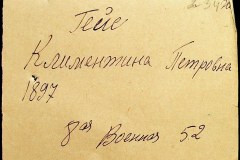 Гейе
Климентина Петровна
1897
8ая Военная 52